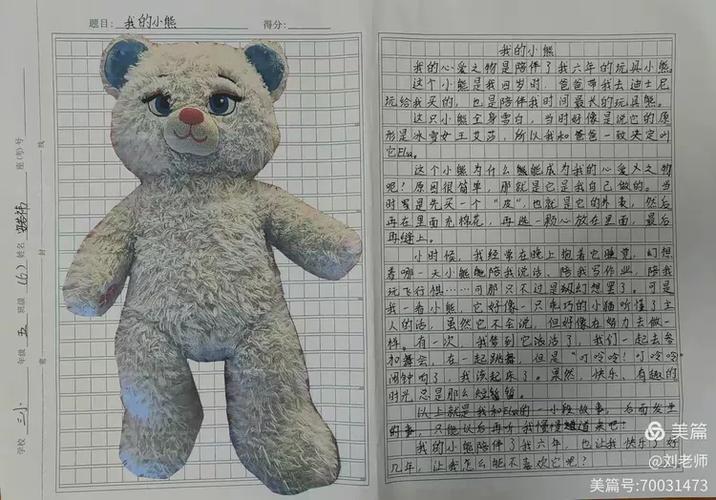 题目：我的小熊
得分：
学校 三小 年级 五 班级 (6) 姓名 座(考)号
线
封
密
我的小熊
我的心爱之物是陪伴了我六年的玩具小熊。
这个小熊是我四岁时，爸爸带我去迪士尼
玩给我买的，也是陪伴我时间最长的玩具熊。
这只小熊全身雪白，当时好像是说它的原
形是冰雪女王艾莎，所以我和爸爸一致决定叫
它Elsa。
这个小熊为什么能成为我的心爱之物
呢？原因很简单，那就是它是我自己做的。当
时是先买一个“皮”，也就是它的外表，然后
再在里面充棉花，再选一颗心放在里面，最后
再缝上。
小时候，我经常在晚上抱着它睡觉，幻想
着哪一天小熊能陪我说话、陪我写作业，陪我
玩飞行棋……可那只不过是幻想罢了。可是
我一看小熊，它好像一只乖巧的小猫听懂了主
人的话，虽然它不会说，但好像在努力去做一
样。有一次，我梦到它活活了，我们一起去参
加舞会，在一起跳舞，但是“叮呤呤！叮呤呤
闹钟响了，我该起床了。果然，快乐、有趣的
时光总是那么短暂
以上就是我和Elsa的一小段故事，后面发生
的事，只能以后再听我慢慢道来吧！
我的小熊陪伴了我六年，也让我快乐了好
几年，让我怎么能不喜欢它呢？
美篇
@刘老师
美篇号:70031473